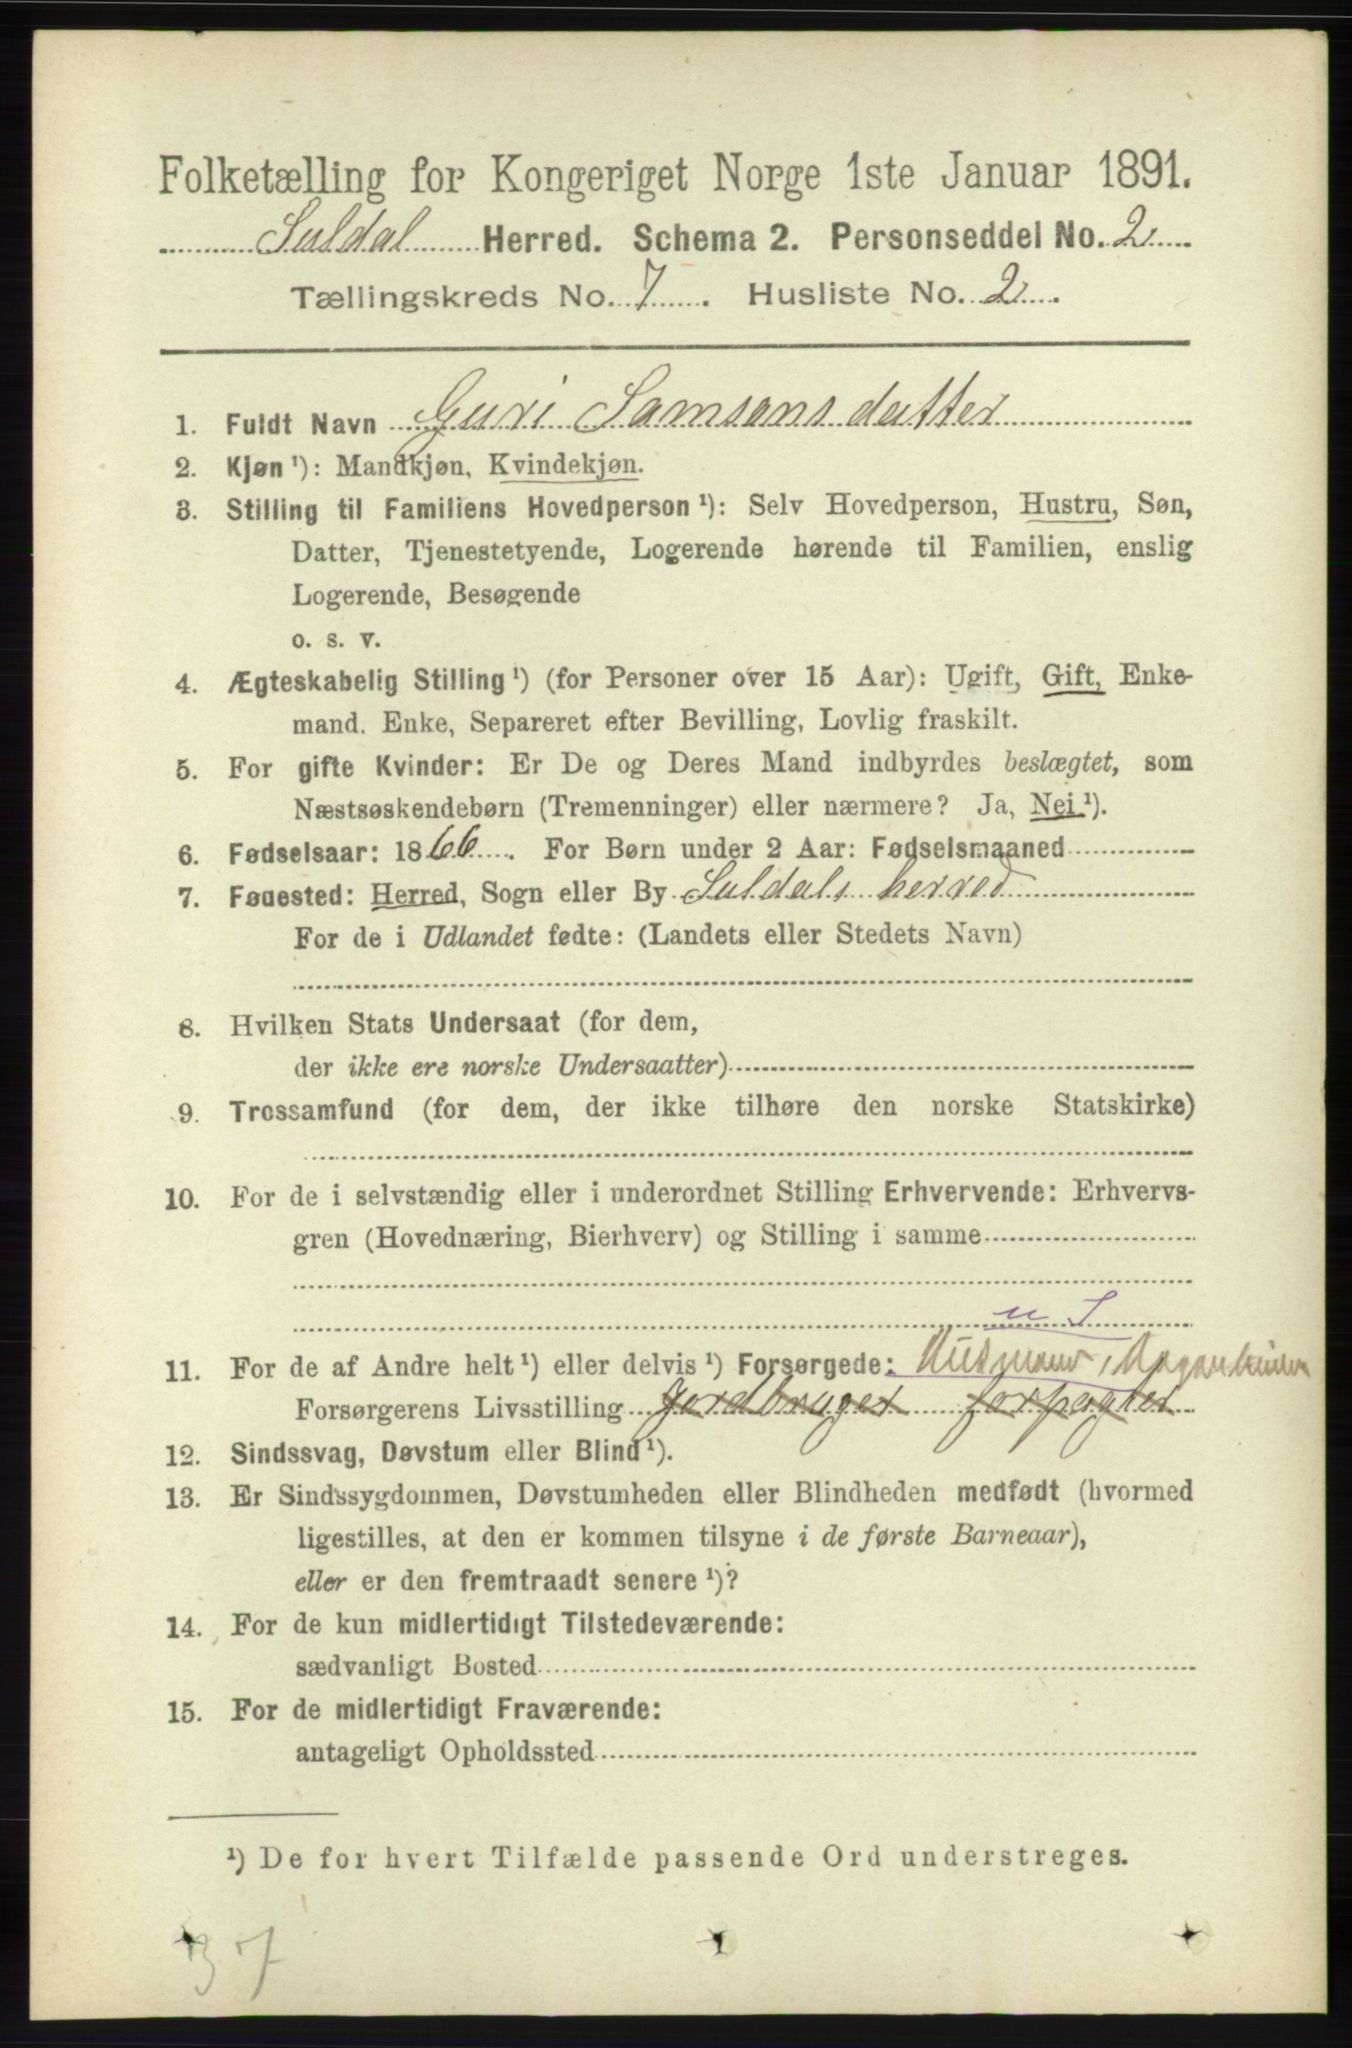 Folketælling for Kongeriget Norge 1ste Januar 1891.
Suldal Herred. Schema 2. Personseddel No. 2
Tællingskreds No. 7. Husliste No. 2.
1. Fuldt Navn Guri Samsonsdatter
2. Kjøn ¹): Mandkjøn, Kvindekjøn.
3. Stilling til Familiens Hovedperson ¹): Selv Hovedperson, Hustru, Søn,
Datter, Tjenestetyende, Logerende hørende til Familien, enslig
Logerende, Besøgende
o. s. v.
4. Ægteskabelig Stilling ¹) (for Personer over 15 Aar): Ugift, Gift, Enke-
mand. Enke, Separeret efter Bevilling, Lovlig fraskilt.
5. For gifte Kvinder: Er De og Deres Mand indbyrdes beslægtet, som
Næstsøskendebørn (Tremenninger) eller nærmere? Ja, Nei ¹).
6. Fødselsaar: 1866. For Børn under 2 Aar: Fødselsmaaned
7. Føuested: Herred, Sogn eller By Suldals herred
For de i Udlandet fødte: (Landets eller Stedets Navn)
8. Hvilken Stats Undersaat (for dem,
der ikke ere norske Undersaatter)
9. Trossamfund (for dem, der ikke tilhøre den norske Statskirke)
10. For de i selvstændig eller i underordnet Stilling Erhvervende: Erhvervs-
gren (Hovednæring, Bierhverv) og Stilling i samme
u S
11. For de af Andre helt ¹) eller delvis ¹) Forsørgede: Husmand,
Forsørgerens Livsstilling Jordbruget forpagter
12. Sindssvag, Døvstum eller Blind ¹).
13. Er Sindssygdommen, Døvstumheden eller Blindheden medfødt (hvormed
ligestilles, at den er kommen tilsyne i de første Barneaar),
eller er den fremtraadt senere ¹)?
14. For de kun midlertidigt Tilstedeværende:
sædvanligt Bosted
15. For de midlertidigt Fraværende:
antageligt Opholdssted
¹) De for hvert Tilfælde passende Ord understreges.
37